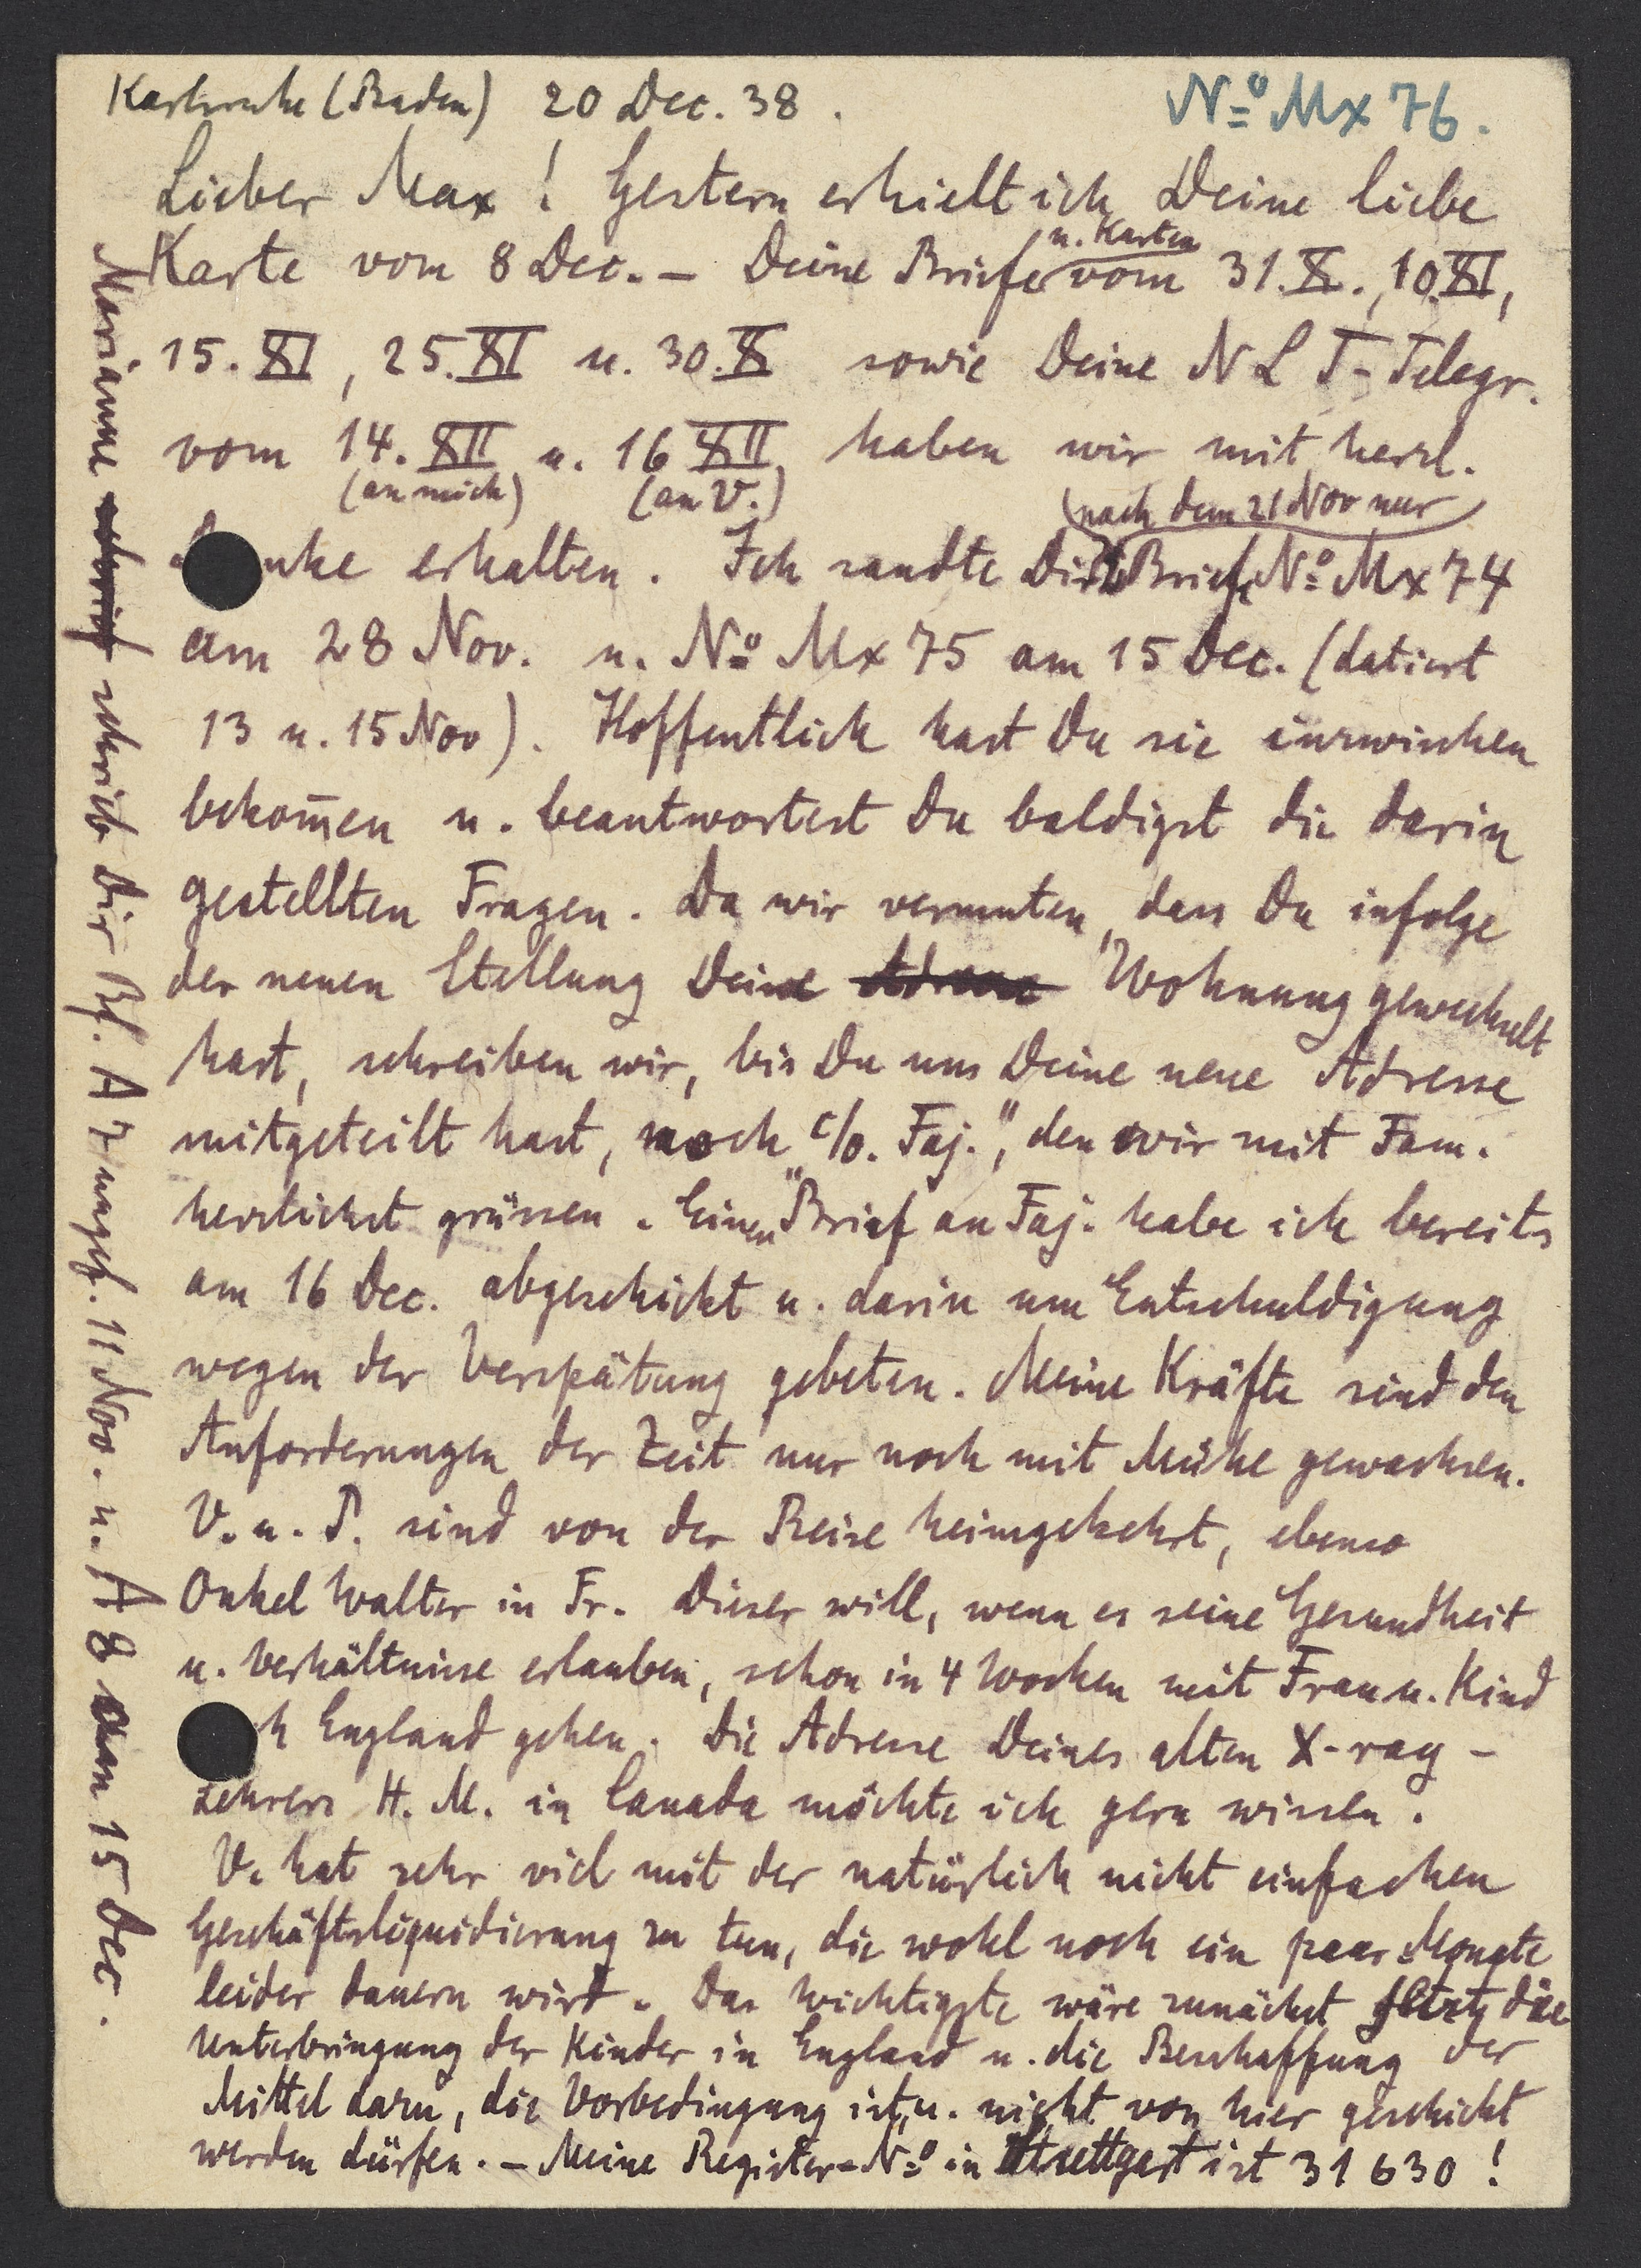 Karlsruhe (Baden) 20 Dec. 38.
No Mx 76.
Lieber Max! Gestern erhielt ich Deine liebe
Karte vom 8 Dec. – Deine Briefe u. Karten vom 31.X., 10.XI,
15.XI, 25.XI u. 30.X sowie Deine NLT-Telegr.
vom 14.XII u. 16 XII, haben wir mit herzl.
(an mich) (an V.)
(nach dem 21 Nov nur)
nke erhalten. Ich sandte Dir Brief No Mx 74
am 28 Nov. u. No Mx 75 am 15 Dec. (datiert
13 u. 15 Nov). Hoffentlich hast Du sie inzwischen
bekom̄en u. beantwortest Du baldigst die darin
gestellten Fragen. Da wir vermuten, dass Du infolge
der neuen Stellung Deine Adresse Wohnung gewechselt
hast, schreiben wir, bis Du uns Deine neue Adresse
mitgeteilt hast, noch "c/o. Faj.", den wir mit Fam.
herzlichst grüssen. Einen Brief an Faj. habe ich bereits
am 16 Dec. abgeschickt u. darin um Entschuldigung
wegen der Verspätung gebeten. Meine Kräfte sind den
Anforderungen der Zeit nur noch mit Mühe gewachsen.
V. u. P. sind von der Reise heimgekehrt, ebenso
Onkel Walter in Fr. Dieser will, wenn es seine Gesundheit
u. Verhältnisse erlauben, schon in 4 Wochen mit Frau u. Kind
h England gehen. Die Adresse Deines alten X-ray-
Lehrers H. M. in Canada möchte ich gern wissen.
V. hat sehr viel mit der natürlich nicht einfachen
Geschäftsliquidierung zu tun, die wohl noch ein paar Monate
leider dauern wird. Das wichtigste wäre zunächst jetzt die
Unterbringung der Kinder in England u. die Beschaffung der
Mittel dazu, die Vorbedingung ist, u. nicht von hier geschickt
werden dürfen. – Meine Register-No in Stuttgart ist 31630!
Marianne schrieb Dir Bf. A 7 ungef. 11 Nov. u. A 8 am 15 Dec.